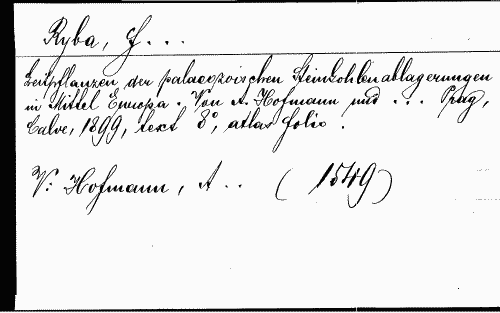 Ryba, F. . .
Leitpflanzen der palaeozoischen Steinkohlenablagerungen
in Mittel Europa. Von A. Hofmann und . . . Prag,
Calve, 1899, text 8°, atlas folio.
V: Hofmann, A . . (1549)